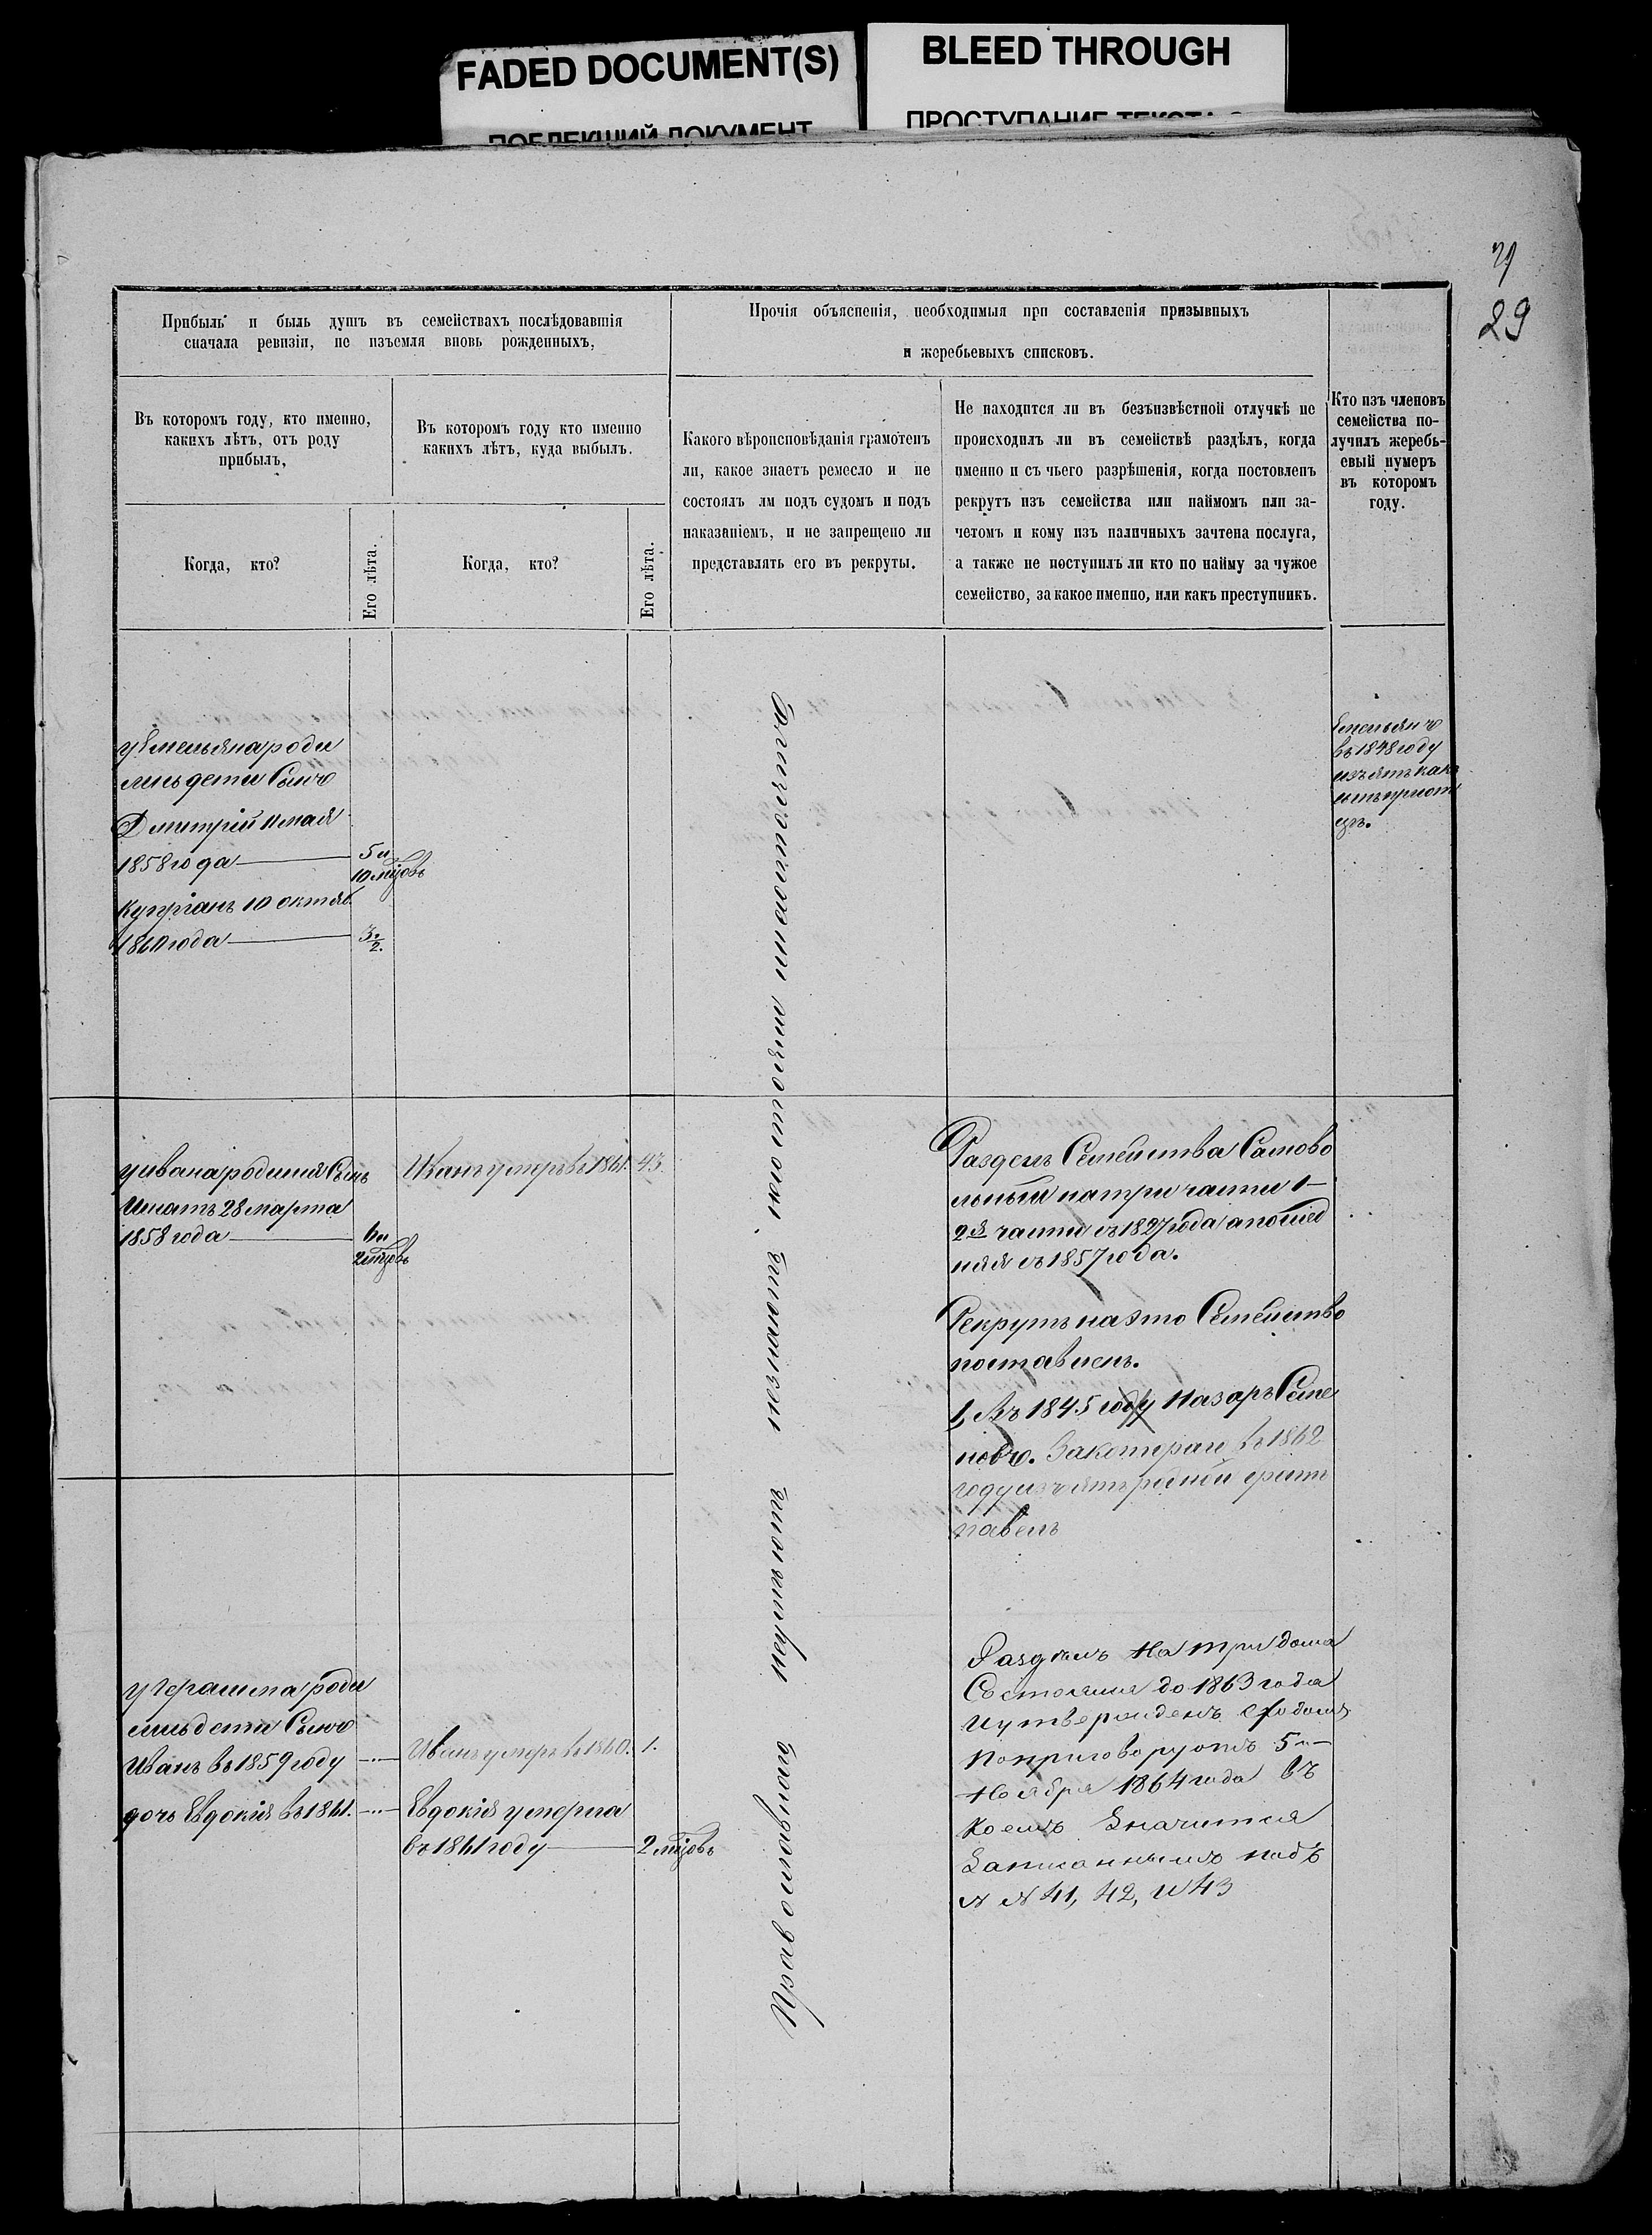 FADED DOCUMENT(S)
BLEED THROUGH
29
Прибыль и быль душъ въ семействахъ послѣдовавшія
сначала ревизіи, не изъемля вновь рожденныхъ,
Прочія объясненія, необходимыя при составленія призывныхъ
и жеребьевыхъ списковъ.
Въ которомъ году, кто именно,
какихъ лѣтъ, отъ роду
прибылъ,
Въ которомъ году кто именно
какихъ лѣтъ, куда выбылъ.
Когда, кто?
Его лѣта.
Когда, кто?
Его лѣта.
Какого вѣроисповѣданія грамотенъ
ли, какое знаетъ ремесло и не
состоялъ лм подъ судомъ и подъ
наказаніемъ, и не запрещено ли
представлять его въ рекруты.
Не находится ли въ безъизвѣстной отлучкѣ не
происходилъ ли въ семействѣ раздѣлъ, когда
именно и съ чьего разрѣшенія, когда постовленъ
рекрутъ изъ семейства или наймомъ или за-
четомъ и кому изъ наличныхъ зачтена послуга,
а также не поступилъ ли кто по найму за чужое
семейство, за какое именно, или какъ преступникъ.
Кто изъ членовъ
семейства по-
лучилъ жеребь-
евый нумеръ
въ которомъ
году.
у Емельяна роди
лись дети Сынъ
Дмитрій 11 мая
1858 года
5 и
10 мцовъ
Купріанъ 10 октяб
1860 года
3 1/2.
Емельянъ
въ 1848 году
изъятъ какъ
у Ивана родился Сынъ
Игнатъ 28 марта
1858 года
6 и
2 мцовъ
Иванъ умеръ въ 1861.
43.
Разделъ Семейства Самово
льный на три части 1-
2я части съ 1827 года а послед
няя съ 1857 года.
Рекрутъ на это Семейство
поставленъ.
1, Въ 1845 году Назаръ Семе
новъ. За которого въ 1862
году изъятъ родной братъ
павелъ
у Герасима роди
лись дети Сынъ
Иванъ въ 1859 году
Иванъ умеръ въ 1860.
1.
дочь Евдокія въ 1861.
Евдокія умерла
въ 1861 году
2 мцовъ
Раздѣлъ На три дома
Состоялся до 1863 года
И утвержденъ сходомъ
По приговору отъ 5го
Ноября 1864 года въ
Коемъ Значится
Записаннымъ подъ
N N 41, 42, и 43
Православного неграмотенъ незнаетъ, не состоялъ